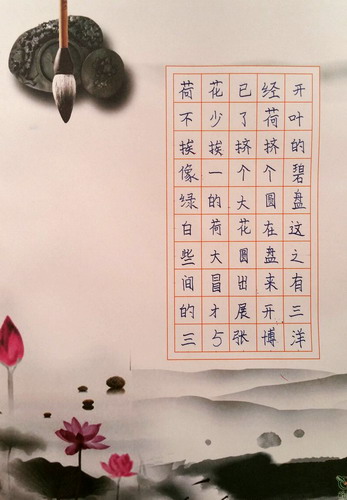 荷花已经开
不少了荷叶
挨挨挤挤的
像一个个碧
绿的大圆盘
白荷花在这
些大圆盘之
间冒出来有
的才展开三
三与张博洋